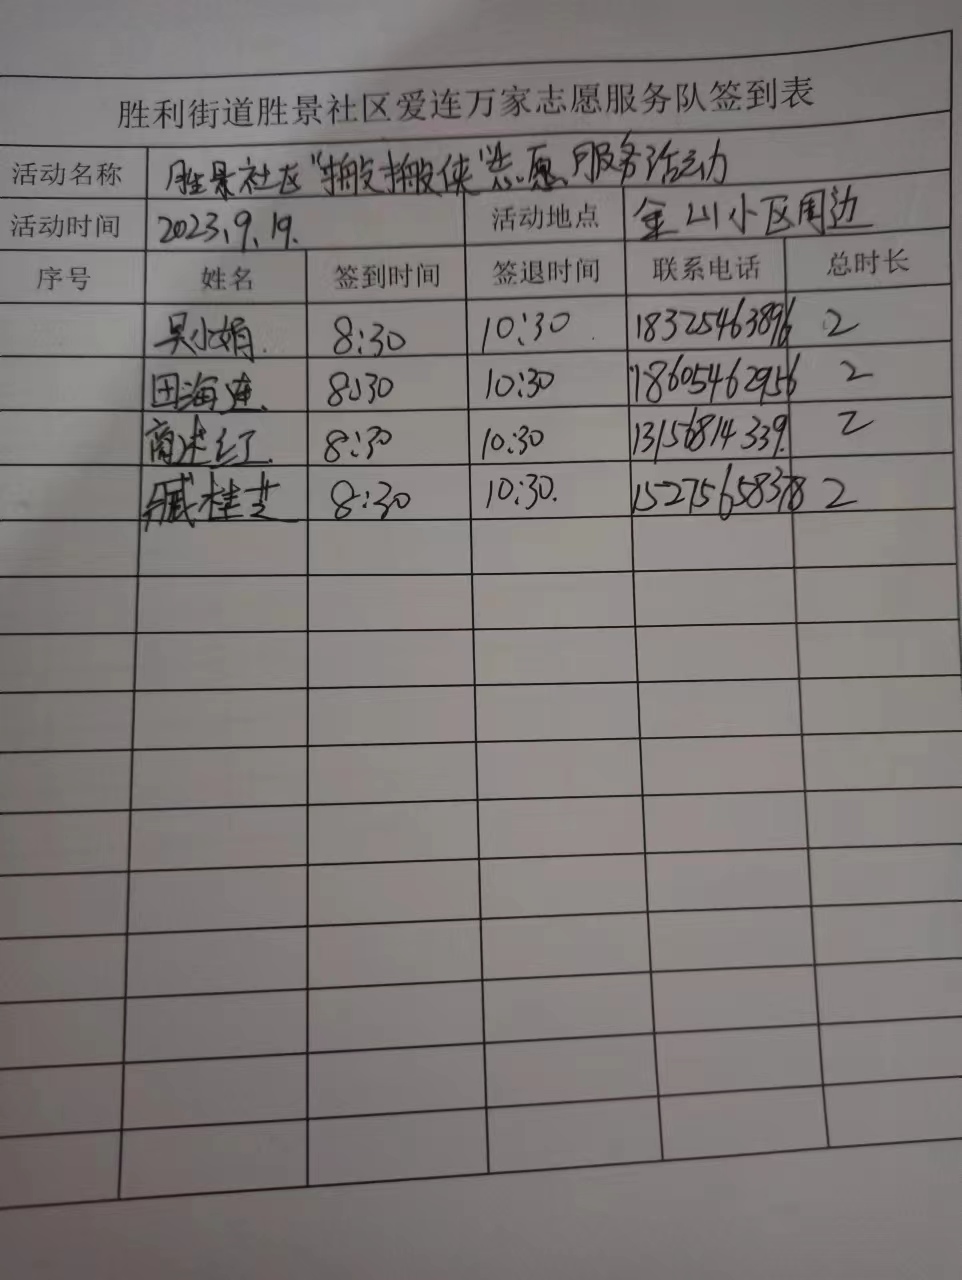 胜利街道胜景社区爱连万家志愿服务队签到表
活动名称 胜景社区“搬搬侠”志愿服务活动
活动时间 2023.9.19. 活动地点 金山小区周边
序号 姓名 签到时间 签退时间 联系电话 总时长
吴小娟. 8:30 10:30 18325463896 2
田海连. 8:30 10:30 18605462956 2
商述红. 8:30 10:30 13156814339. 2
臧桂芝 8:30 10:30. 15275658378 2